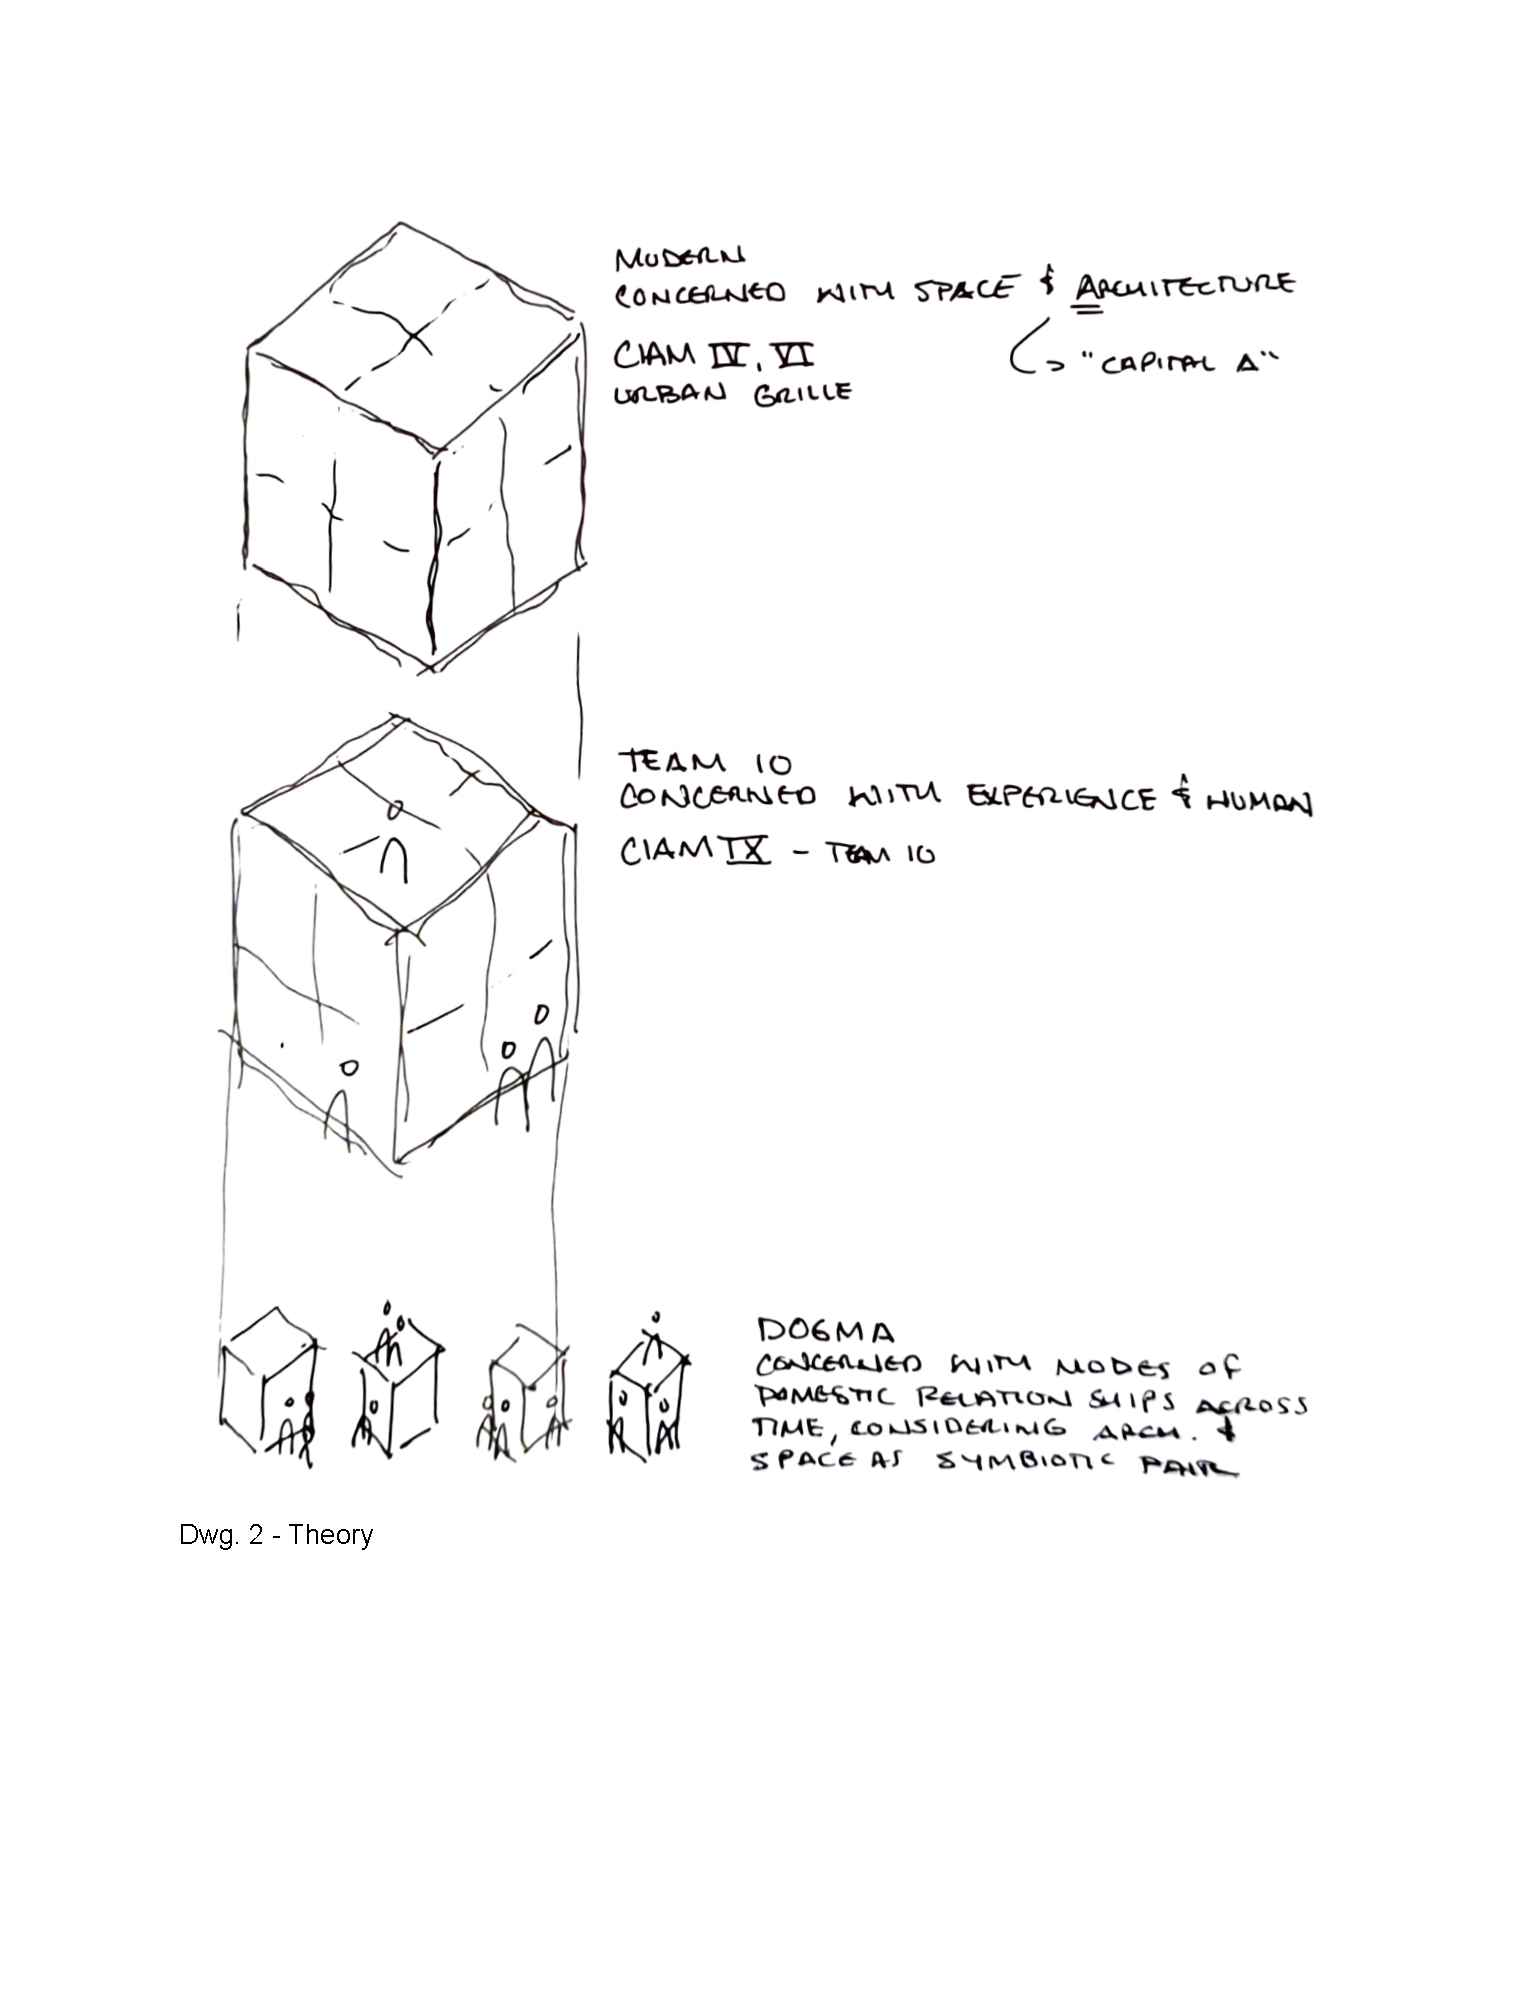 MODERN
CONCERNED WITH SPACE & ARCHITECTURE
CIAM IV, VI
"CAPITAL A"
URBAN GRILLE
TEAM 10
CONCERNED WITH EXPERIENCE & HUMAN
CIAM IX - TEAM 10
DOGMA
CONCERNED WITH MODES OF
DOMESTIC RELATION SHIPS ACROSS
TIME, CONSIDERING ARCH. &
SPACE AS SYMBIOTIC PAIR
Dwg. 2 - Theory